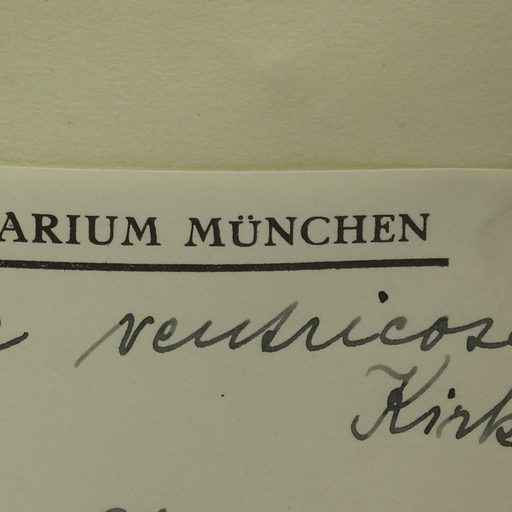 ARIUM MÜNCHEN
ventricos
Kirk